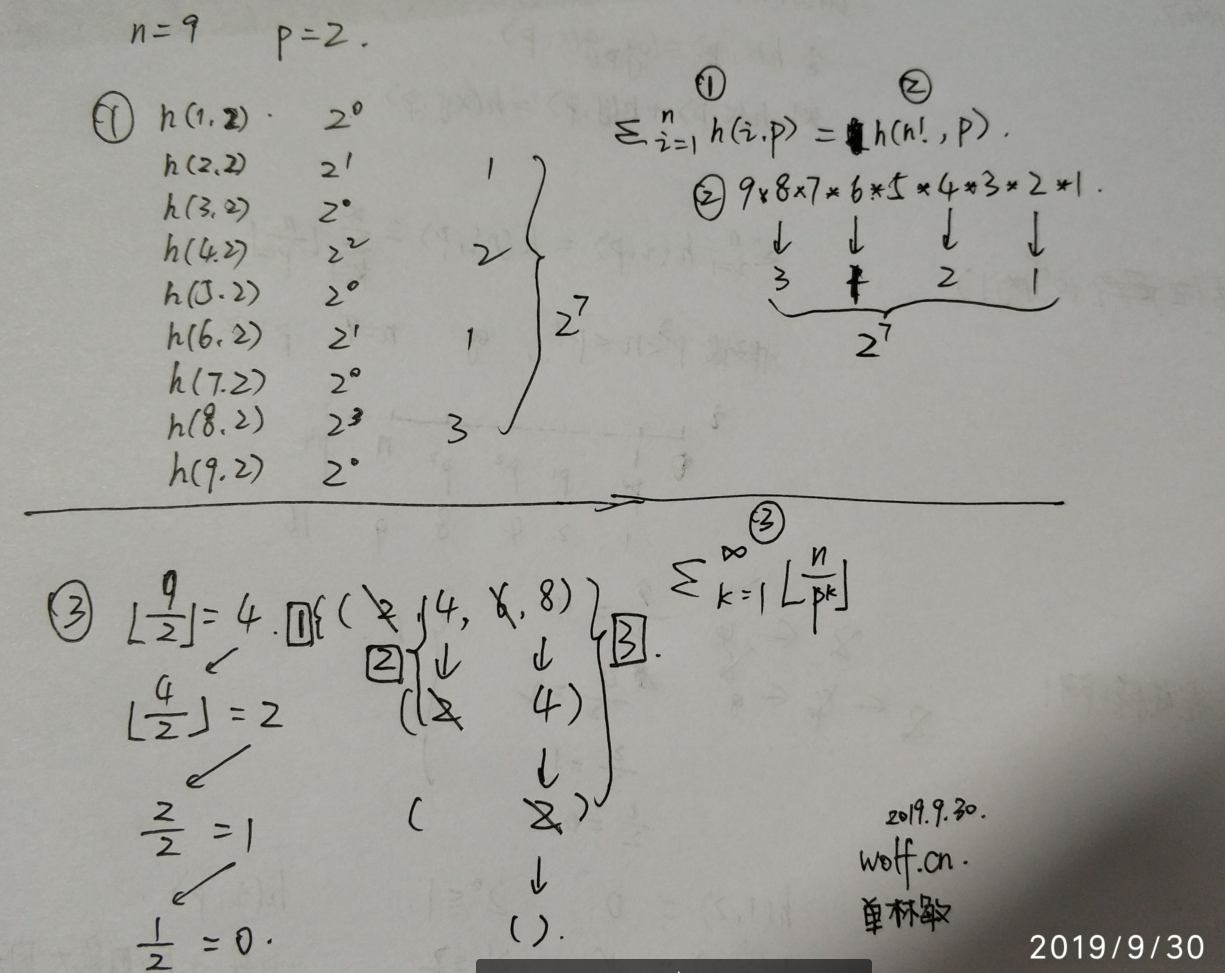 n=9 p=2.
① h(1,2). 2⁰
h(2,2) 2¹ 1
h(3,2) 2⁰
h(4.2) 2² 2
h(5.2) 2⁰
h(6,2) 2¹ 1
h(7.2) 2⁰
h(8,2) 2³ 3
h(9.2) 2⁰
2⁷
① ②
Σⁿᵢ₌₁ h(i.p) = h(n!, p).
② 9*8*7*6*5*4*3*2*1.
↓ ↓ ↓ ↓
3 1 2 1
2⁷
③
Σ^∞ₖ₌₁ ⌊n/pᵏ⌋
③ ⌊9/2⌋=4. 1 { (2, 4, 6, 8)
2 ↓ ↓ 3.
⌊4/2⌋=2 (2 4)
↓
2/2 =1 ( 2)
↓
1/2 =0. ( ).
2019.9.30.
wolf.cn.
单林敏
2019/9/30